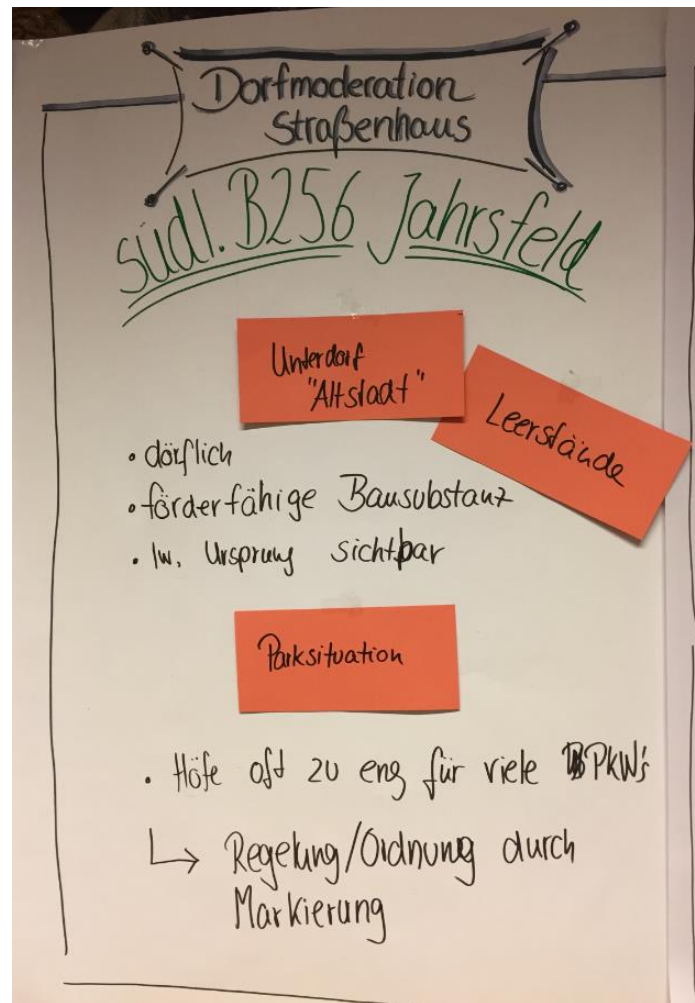 Dorfmoderation
Straßenhaus
südl. B256 Jahrsfeld
Unterdorf
"Altstadt"
Leerstände
• dörflich
• förderfähige Bausubstanz
• lw. Ursprung sichtbar
Parksituation
• Höfe oft zu eng für viele PKW's
↳ Regelung/Ordnung durch
Markierung